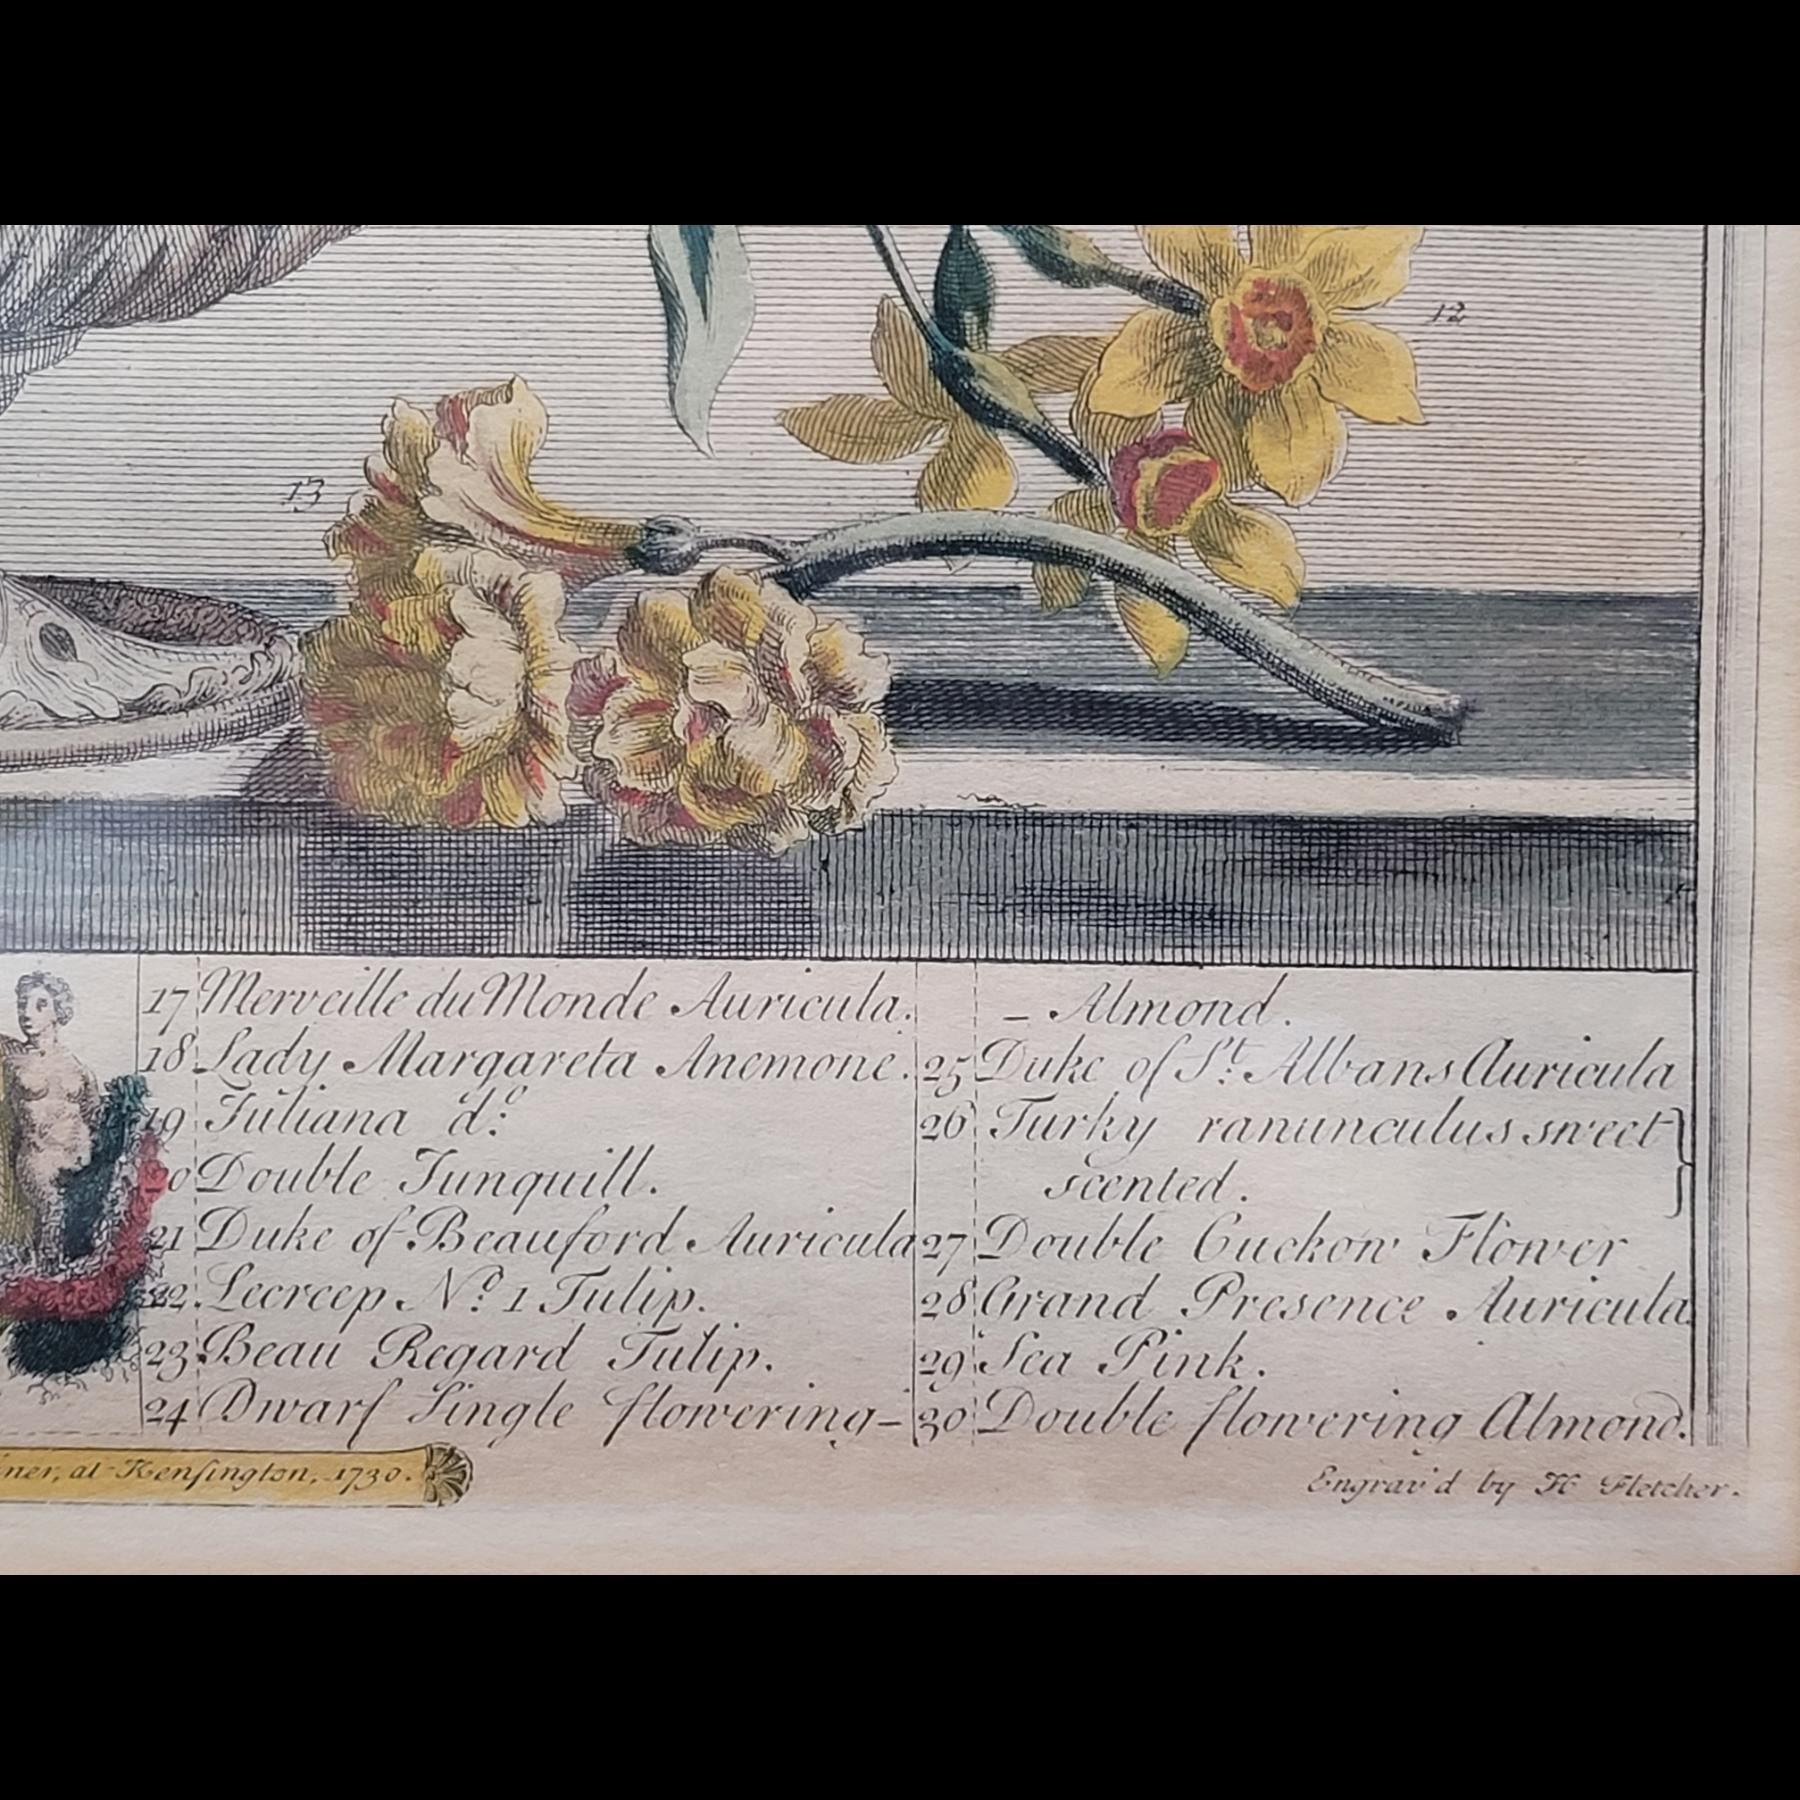 12
13
17 Merveille du Monde Auricula.
18 Lady Margareta Anemone.
19 Juliana do.
20 Double Junquill.
21 Duke of Beauford Auricula
22. Lecreep No. 1 Tulip.
23 Beau Regard Tulip.
24 Dwarf Single flowering-
- Almond.
25 Duke of St. Albans Auricula
26 Turky ranunculus sweet
scented.
27 Double Cuckow Flower
28 Grand Presence Auricula
29 Sea Pink.
30 Double flowering Almond.
iner, at Kensington, 1730.
Engrav'd by H Fletcher.